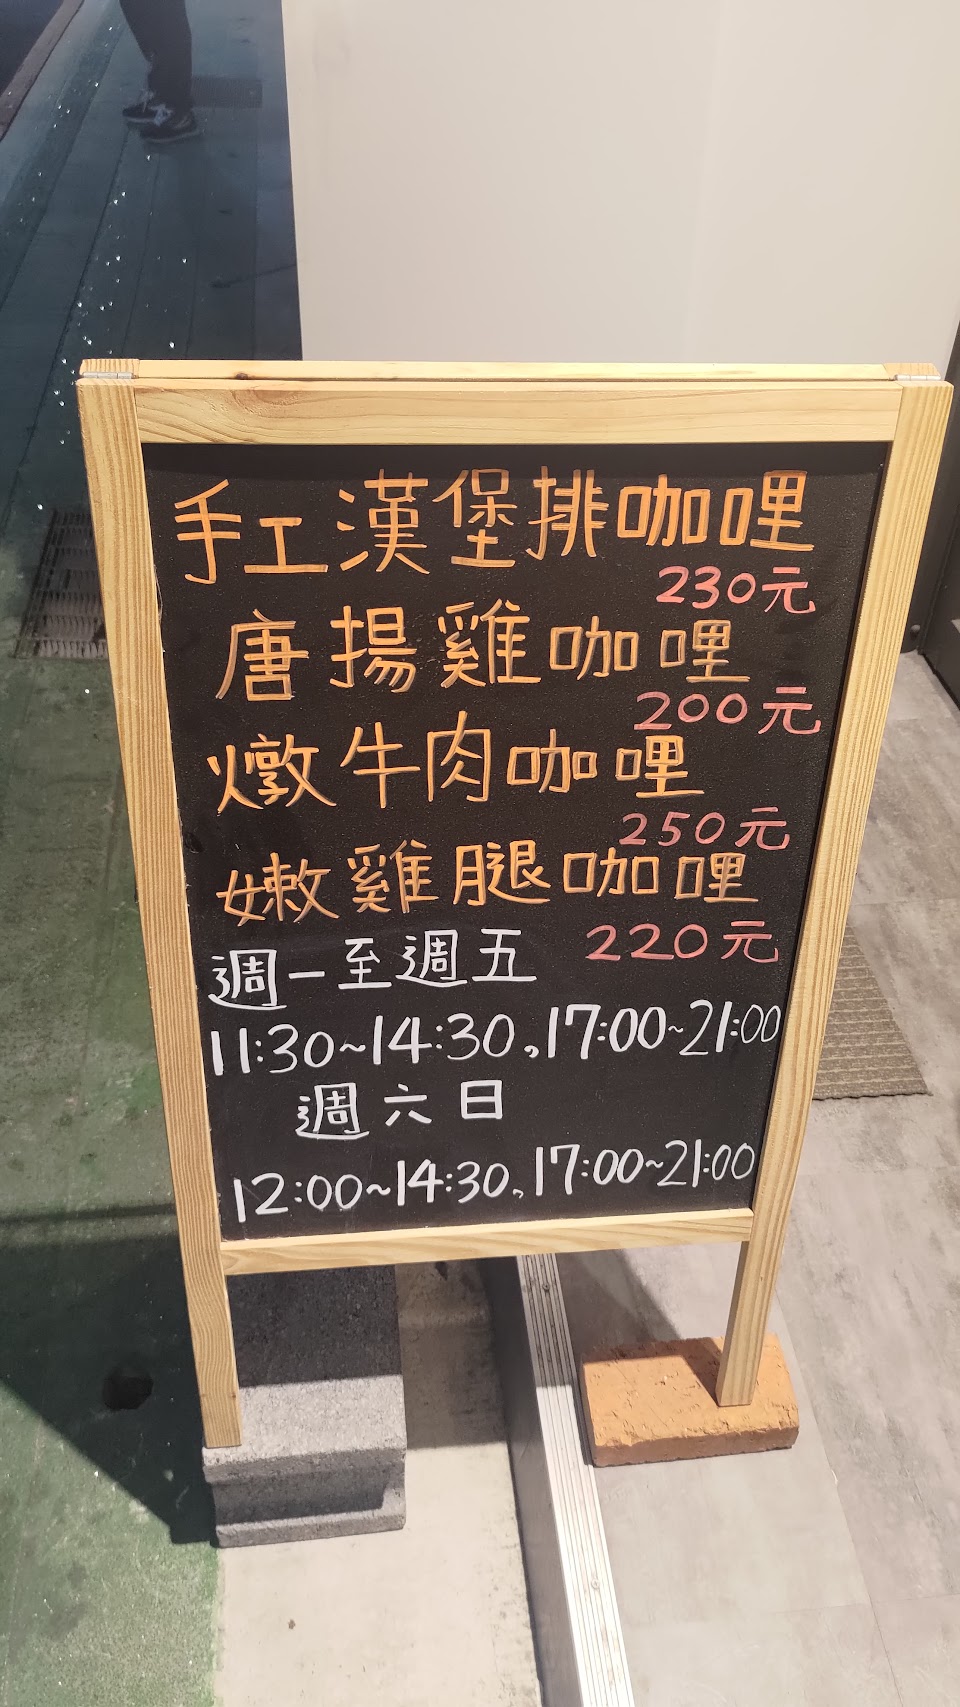 手工漢堡排咖哩
230元
唐揚雞咖哩
200元
燉牛肉咖哩
250元
嫩雞腿咖哩
220元
週一至週五
11:30~14:30,17:00~21:00
週六日
12:00~14:30,17:00~21:00